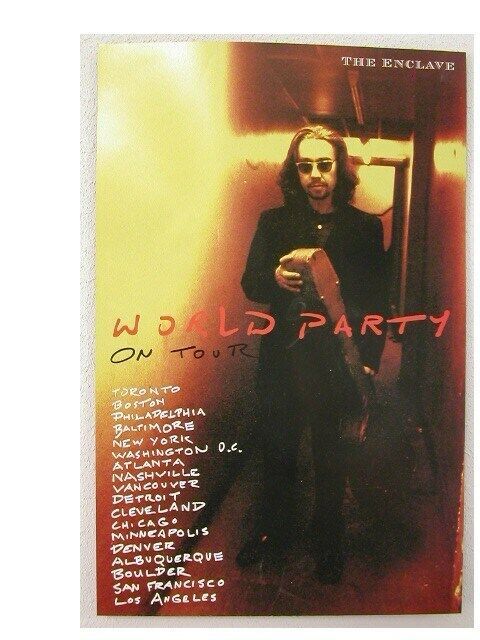 THE ENCLAVE
WORLD PARTY
ON TOUR
TORONTO
BOSTON
PHILADELPHIA
BALTIMORE
NEW YORK
WASHINGTON D.C.
ATLANTA
NASHVILLE
VANCOUVER
DETROIT
CLEVELAND
CHICAGO
MINNEAPOLIS
DENVER
ALBUQUERQUE
BOULDER
SAN FRANCISCO
LOS ANGELES